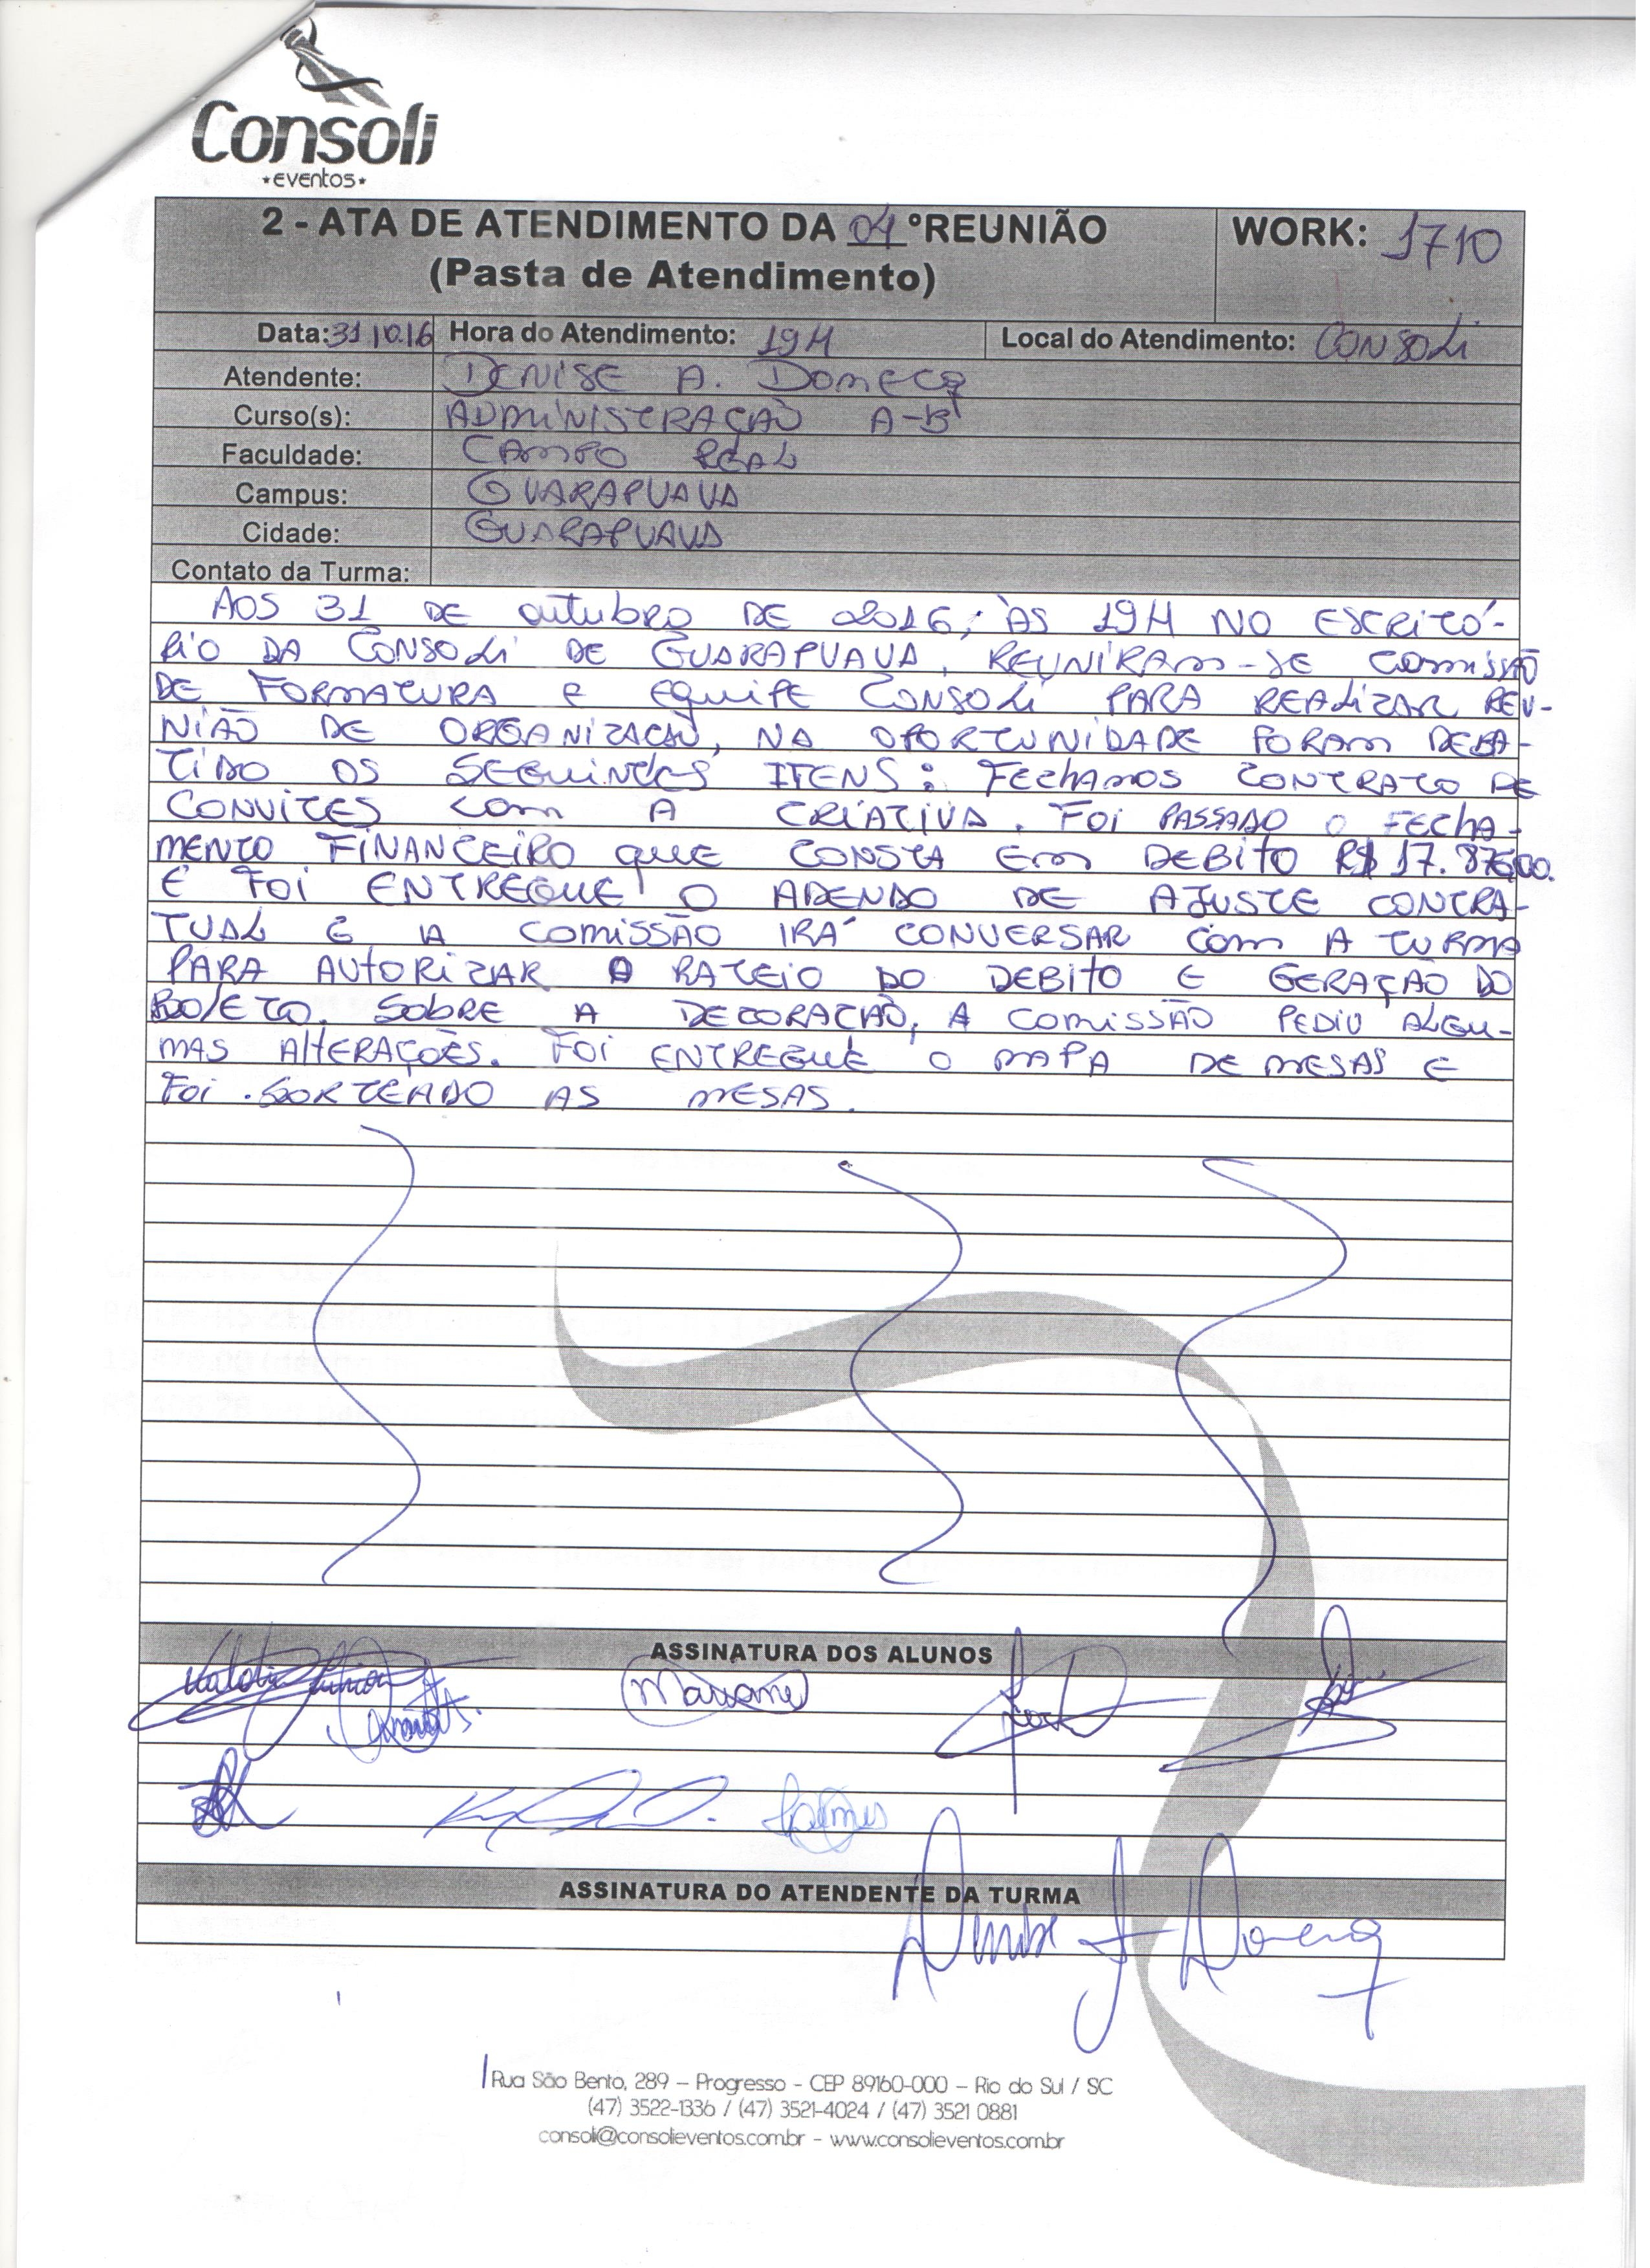 Consoli
*eventos*
2 - ATA DE ATENDIMENTO DA 04 ºREUNIÃO
(Pasta de Atendimento)
WORK: 1710
Data: 31/10.16 Hora do Atendimento: 19H Local do Atendimento: CONSOLI
Atendente: DENISE A. DOMECQ
Curso(s): ADMINISTRAÇÃO A-B
Faculdade: CAMPO REAL
Campus: GUARAPUAVA
Cidade: GUARAPUAVA
Contato da Turma:
AOS 31 DE outubro DE 2016; ÀS 19H NO ESCRITÓ-
RIO DA CONSOLI DE GUARAPUAVA, REUNIRAM-SE COMISSÃO
DE FORMATURA E EQUIPE CONSOLI PARA REALIZAR REU-
NIÃO DE ORGANIZAÇÃO, NA OPORTUNIDADE FORAM DEBA-
TIDO OS SEGUINTES ITENS: FECHAMOS CONTRATO DE
CONVITES COM A CRIATIVA. FOI PASSADO O FECHA-
MENTO FINANCEIRO QUE CONSTA EM DEBITO R$ 17.876,00.
E FOI ENTREGUE O ADENDO DE AJUSTE CONTRA-
TUAL E A COMISSÃO IRÁ CONVERSAR COM A TURMA
PARA AUTORIZAR O RATEIO DO DEBITO E GERAÇÃO DO
BOLETO. SOBRE A DECORAÇÃO, A COMISSÃO PEDIU ALGU-
MAS ALTERAÇÕES. FOI ENTREGUE O MAPA DE MESAS E
FOI SORTEADO AS MESAS.
ASSINATURA DOS ALUNOS
Mariane
ASSINATURA DO ATENDENTE DA TURMA
Rua São Bento, 289 – Progresso - CEP 89160-000 – Rio do Sul / SC
(47) 3522-1336 / (47) 3521-4024 / (47) 3521 0881
consoli@consolieventos.com.br - www.consolieventos.com.br